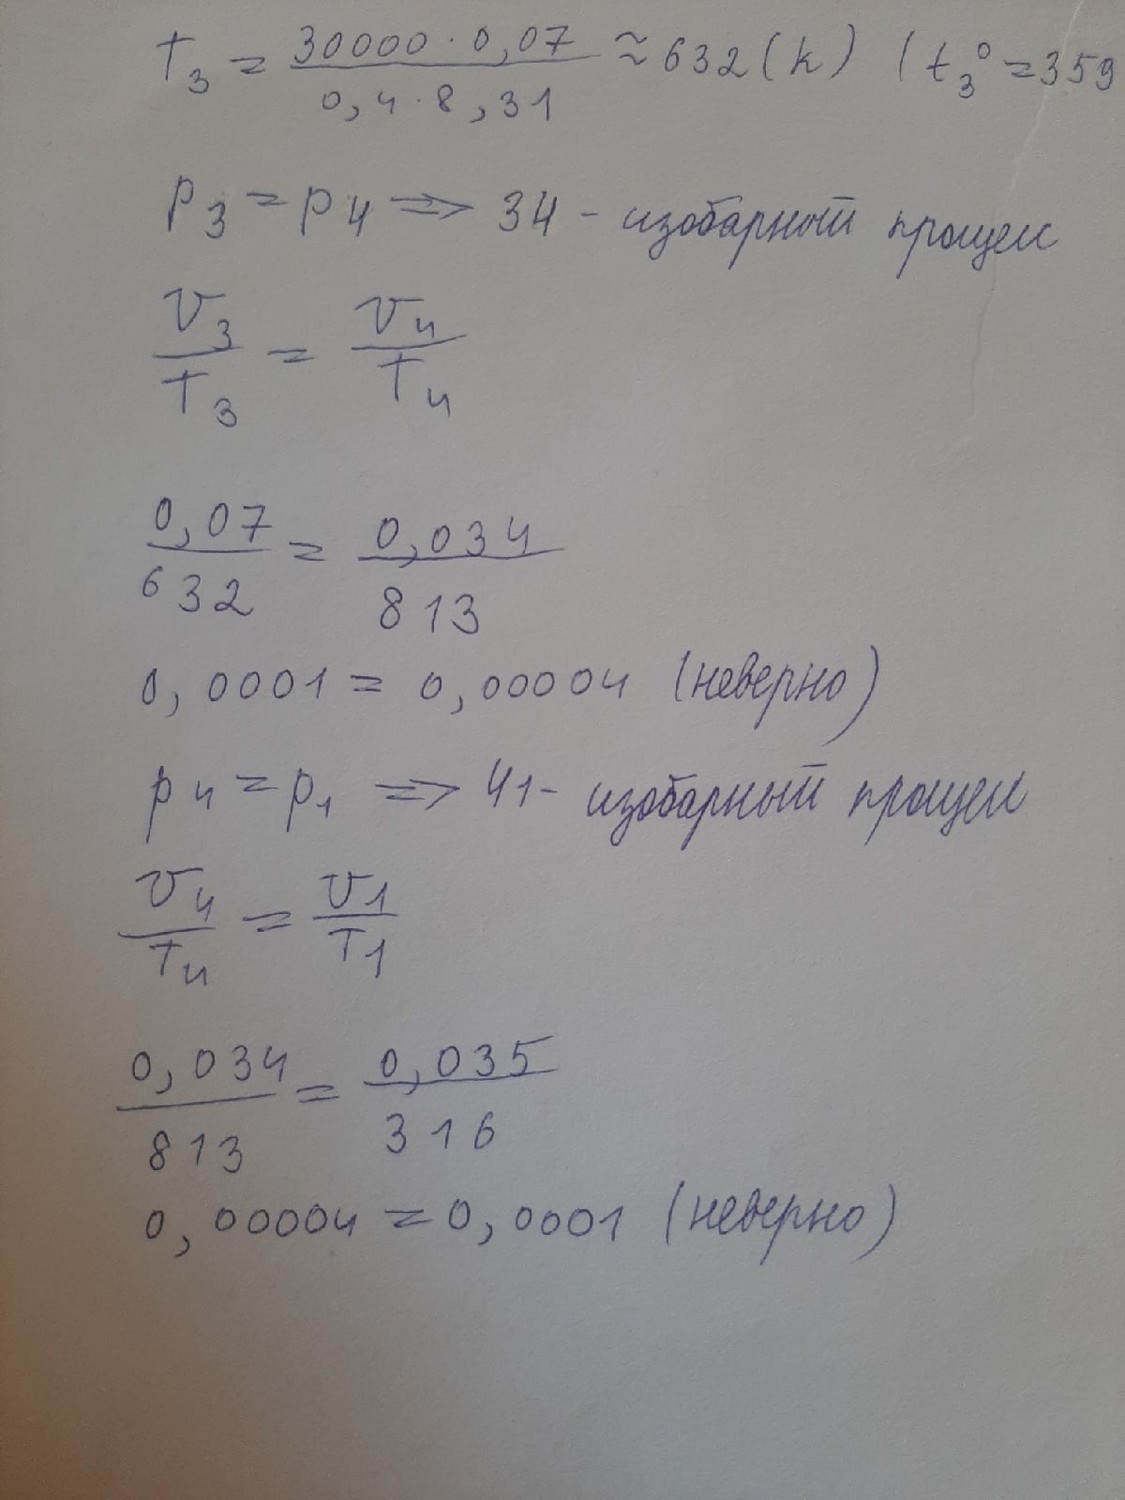 T₃ = 30000 · 0,07 / 0,4 · 8,31 ≈ 632 (k) (t₃° = 359
p₃ = p₄ => 34 - изобарный процесс
V₃/T₃ = V₄/T₄
0,07/632 = 0,034/813
0,0001 = 0,00004 (неверно)
p₄ = p₁ => 41 - изобарный процесс
V₄/T₄ = V₁/T₁
0,034/813 = 0,035/316
0,00004 = 0,0001 (неверно)